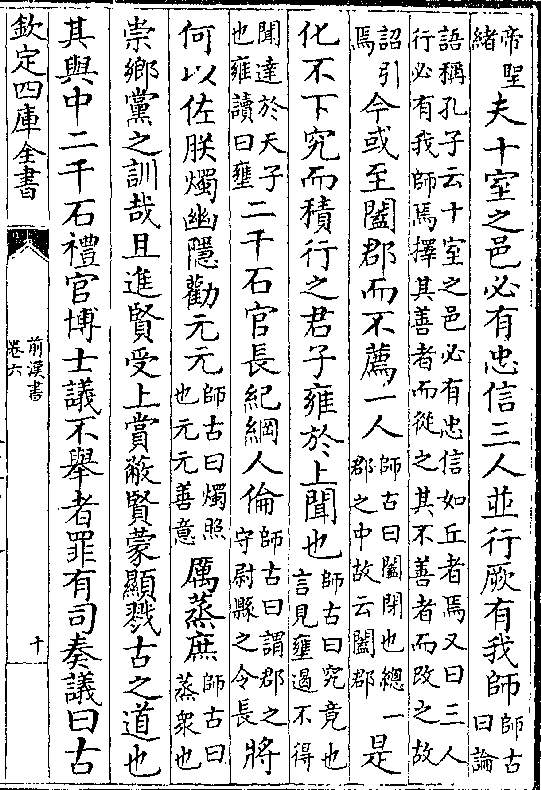 帝聖緒夫十室之邑必有忠信三人並行厥有我師師古曰論
語稱孔子云十室之邑必有忠信如丘者焉又曰三人
行必有我師焉擇其善者而從之其不善者而改之故
詔引焉今或至闔郡而不薦一人師古曰闔閉也總一郡之中故云闔郡是
化不下究而積行之君子雍於上聞也師古曰究竟也言見壅遏不得
聞達於天子也雍讀曰壅二千石官長紀綱人倫師古曰謂郡之守尉縣之令長將
何以佐朕燭幽隱勸元元師古曰燭照也元元善意厲蒸庶師古曰蒸衆也
崇鄉黨之訓哉且進賢受上賞蔽賢蒙顯戮古之道也
其與中二千石禮官博士議不舉者罪有司奏議曰古
欽定四庫全書
前漢書
卷六
十